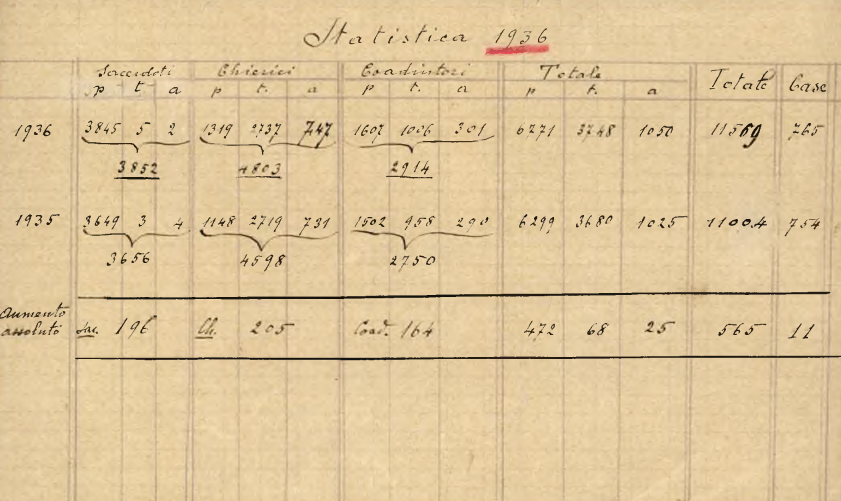 Statistica 1936
Sacerdoti Chierici Coadiutori Totale Totale Case
p t. a p t. a p t. a p t. a
1936 3845 5 2 1319 2737 747 1607 1006 301 6771 3748 1050 11569 765
3852 4803 2914
1935 3649 3 4 1148 2719 731 1502 958 290 6299 3680 1025 11004 754
3656 4598 2750
Aumento
assoluto Sac. 196 Ch. 205 Coad. 164 472 68 25 565 11